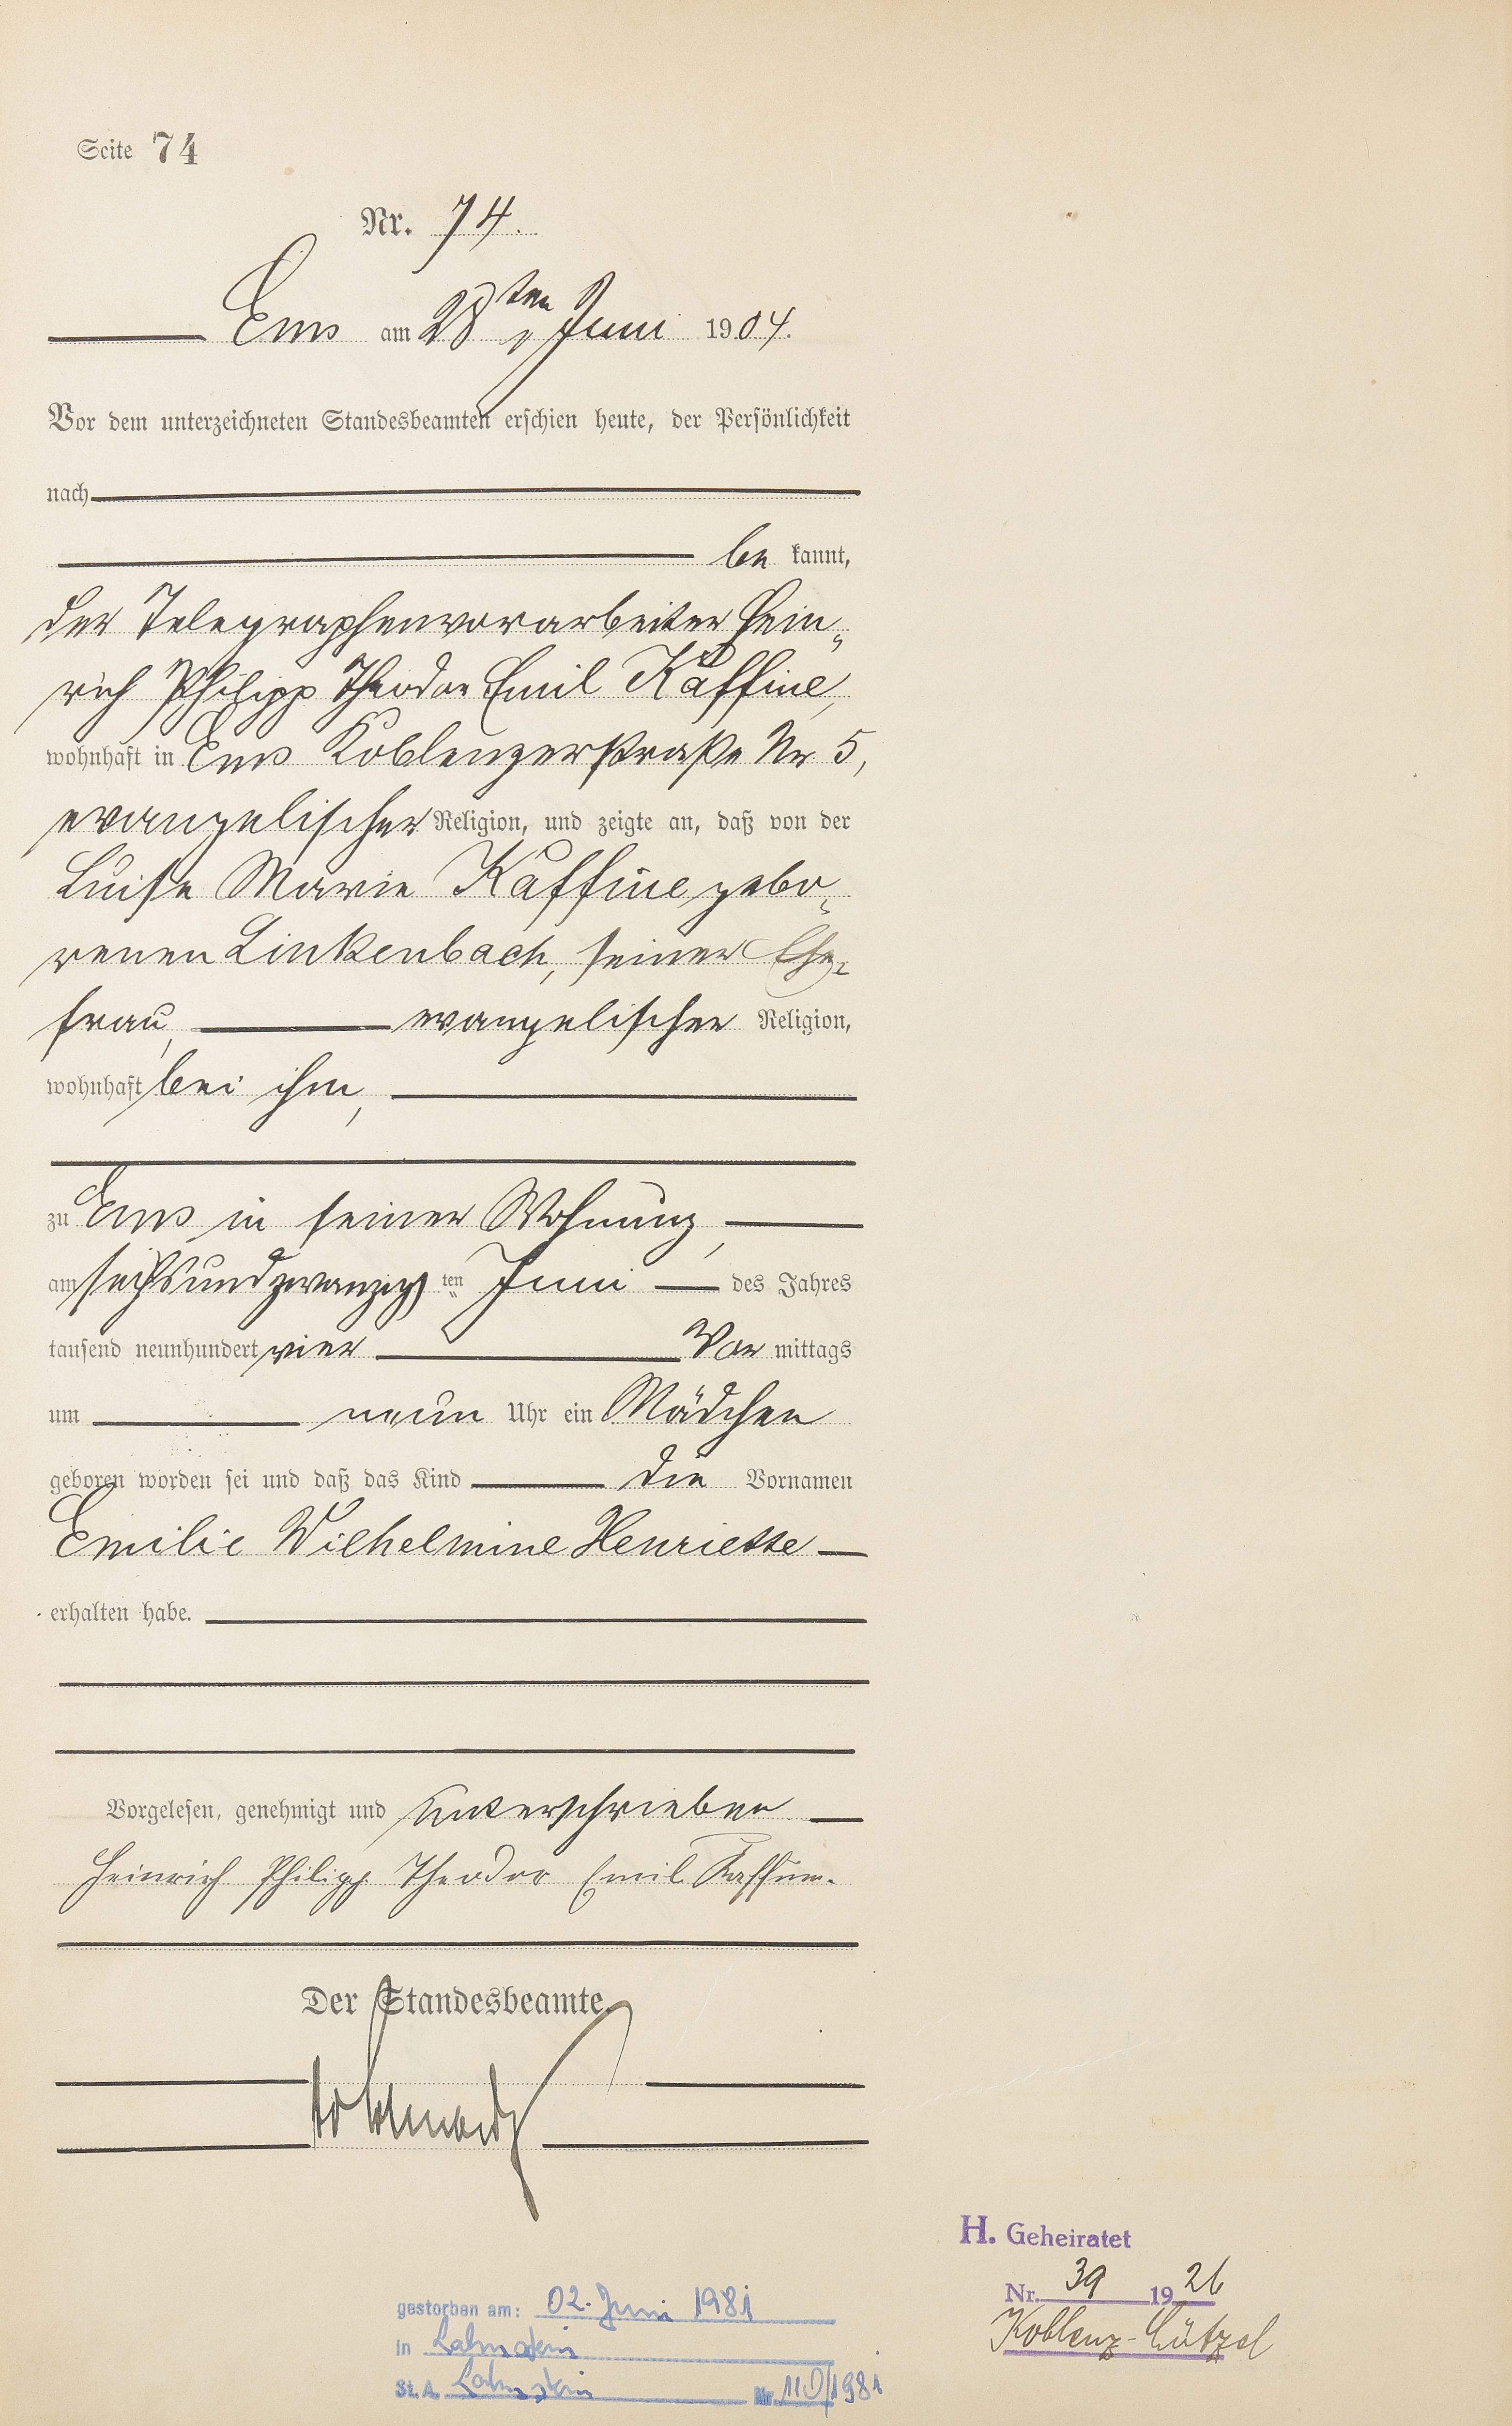 Seite 74
Nr. 74.
Ems am 28ten Juni 1904.
Vor dem unterzeichneten Standesbeamten erschien heute, der Persönlichkeit
nach
be kannt,
der Telegraphenvorarbeiter Hein„
rich Philipp Theodor Emil Kaffine,
wohnhaft in Ems Koblenzerstraße Nr. 5,
evangelischer Religion, und zeigte an, daß von der
Luise Marie Kaffine, gebo„
renen Linkenbach, seiner Ehe„
frau, evangelischer Religion,
wohnhaft bei ihm,
zu Ems in seiner Wohnung,
am sechsundzwanzig ten Juni des Jahres
tausend neunhundert vier Vor mittags
um neun Uhr ein Mädchen
geboren worden sei und daß das Kind die Vornamen
Emilie Wilhelmine Henriette
erhalten habe.
Vorgelesen, genehmigt und unterschrieben
Heinrich Philipp Theodor Emil Kaffine.
Der Standesbeamte.
H. Geheiratet
Nr. 39 1926
Koblenz-Lützel
gestorben am: 02. Juni 1981
in Lahnstein
St. A. Lahnstein Nr. 110/1981